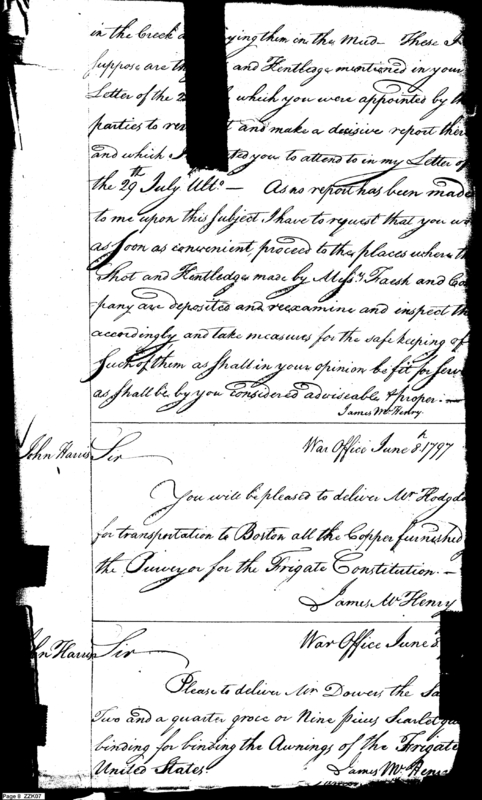 in the Creek and ying them in the Mud— These I
suppose are the and Kentledge mentioned in your
Letter of the 2 which you were appointed by th
parties to rev t and make a decisive report there
and which I ted you to attend to in my Letter of
the 29th July Ulto— As no report has been made
to me upon this subject I have to request that you w
as soon as convenient, proceed to the places where th
Shot and Kentledge made by Messrs. Faesh and Com
pany are deposited and reexamine and inspect th
accordingly and take measures for the safe keeping of
such of them as shall in your opinion be fit for serv
as shall be by you considered adviseable & proper.—
James McHenry
John Harris Sir War Office June 8th 1797
You will be pleased to deliver Mr Hodgdo
for transportation to Boston all the Copper furnished
the Purveyor for the Frigate Constitution.—
James McHenry
John Harris Sir War Office June 8
Please to deliver Mr Dowers the Sa
Two and a quarter groce or Nine pieces Scarlet
binding for binding the Awnings of the Frigate
United States.
James McHenr
Page 8 ZZK07